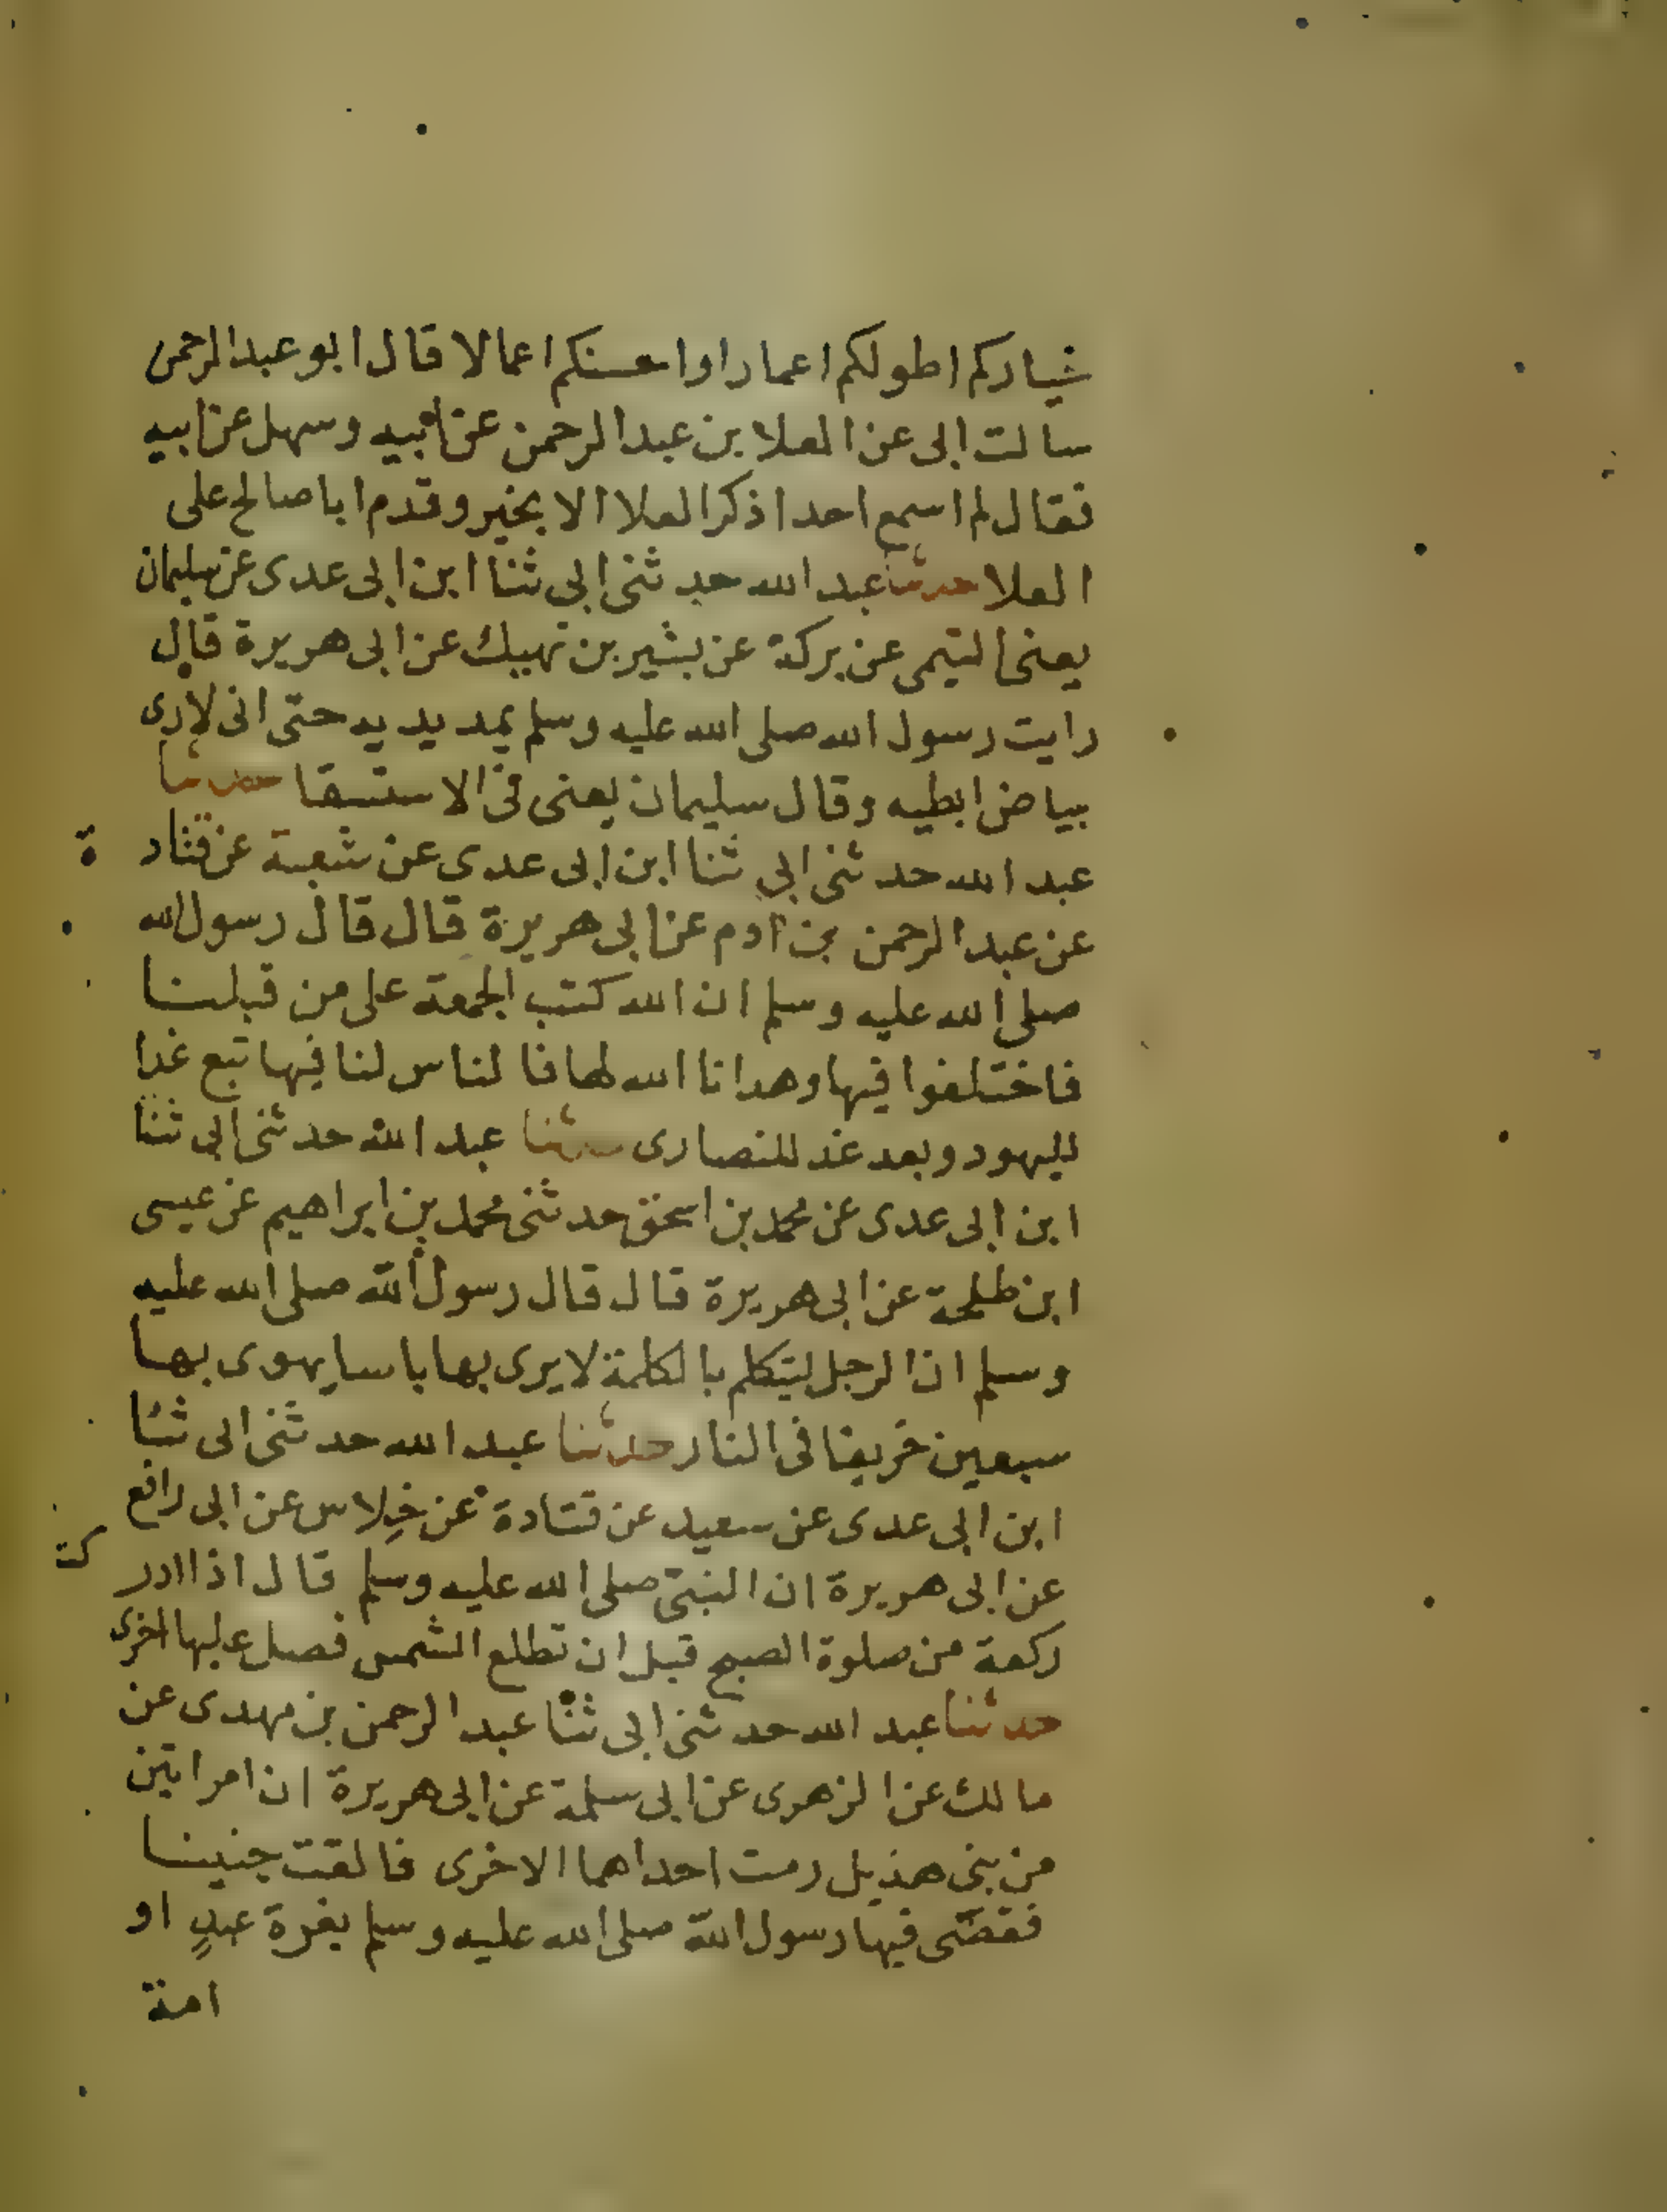 خياركم اطولكم اعمارا واحسنكم اعمالا قال ابو عبد الرحمن
سالت ابى عن العلا بن عبد الرحمن عن ابيه وسهل عن ابيه
فقال لم اسمع احدا ذكر العلا الا بخير وقدم ابا صالح على
العلا حدثنا عبد الله حدثنى ابي ثنا ابن ابى عدى عن سليمان
يعنى التيمى عن بركة عن بشير بن نهيك عن ابى هريرة قال
رايت رسول الله صلى الله عليه وسلم يمد يديه حتى انى لارى
بياض ابطيه وقال سليمان يعنى فى الاستسقا حدثنا
عبد الله حدثنى ابي ثنا ابن ابى عدى عن شعبة عن قتادة
عن عبد الرحمن بن آدم عن ابى هريرة قال قال رسول الله
صلى الله عليه وسلم ان الله كتب الجمعة على من قبلنا
فاختلفوا فيها وهدانا الله لها فالناس لنا فيها تبع غدا
لليهود وبعد غد للنصارى حدثنا عبد الله حدثنى ابى ثنا
ابن ابى عدى عن محمد بن اسحق حدثنى محمد بن ابراهيم عن عيسى
ابن طلحة عن ابى هريرة قال قال رسول الله صلى الله عليه
وسلم ان الرجل ليتكلم بالكلمة لا يرى بها باسا يهوى بها
سبعين خريفا فى النار حدثنا عبد الله حدثنى ابى ثنا
ابن ابى عدى عن سعيد عن قتادة عن خِلاس عن ابى رافع
عن ابى هريرة ان النبى صلى الله عليه وسلم قال اذا ادركت
ركعة من صلوة الصبح قبل ان تطلع الشمس فصل عليها اخرى
حدثنا عبد الله حدثنى ابى ثنا عبد الرحمن بن مهدى عن
مالك عن الزهرى عن ابى سلمة عن ابى هريرة ان امراتين
من بنى هذيل رمت احداهما الاخرى فالقت جنينا
فقضى فيها رسول الله صلى الله عليه وسلم بغرة عبدٍ او
امة